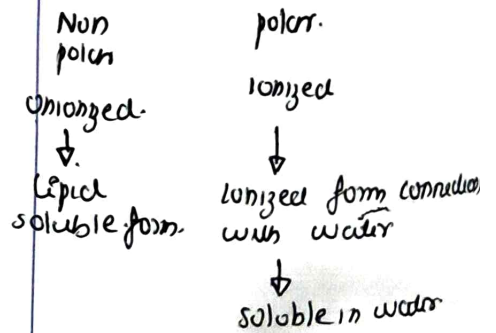 Non
polar
unionzed.
Lipid
soluble form.
polar.
Ionized
Ionized form connection
with water
soluble in water